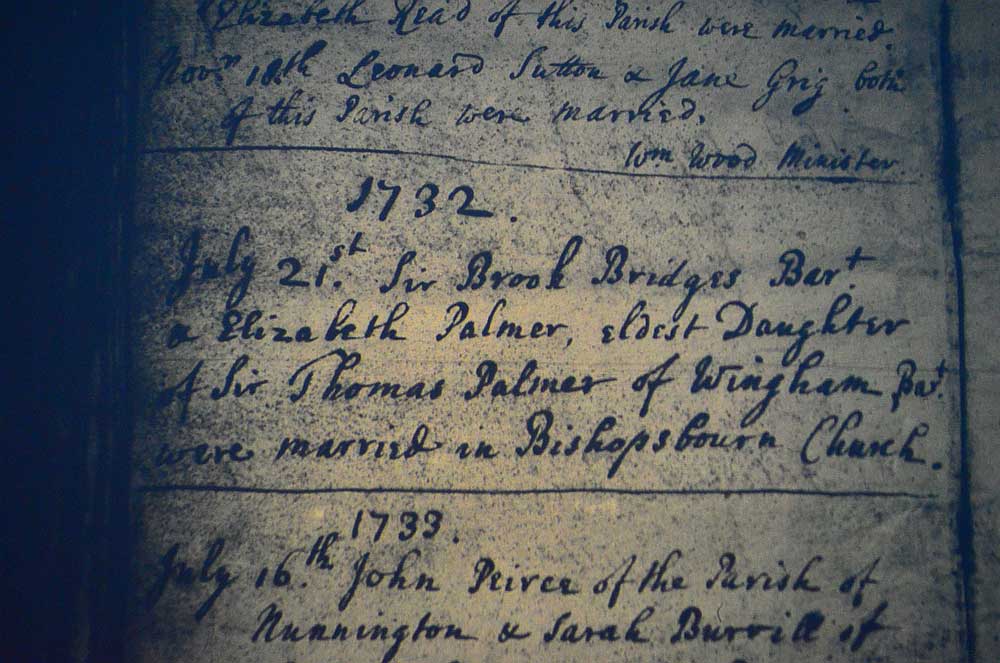 Elizabeth Read of this Parish were married.
Novr. 18th Leonard Sutton & Jane Grig both
of this Parish were married.
Wm Wood Minister.
1732.
July 21.st Sir Brook Bridges Bart.
& Elizabeth Palmer, eldest Daughter
of Sir Thomas Palmer of Wingham Bat.
were married in Bishopsbourn Church.
1733.
July 16.th John Peirce of the Parish of
Nunnington & Sarah Burvill of